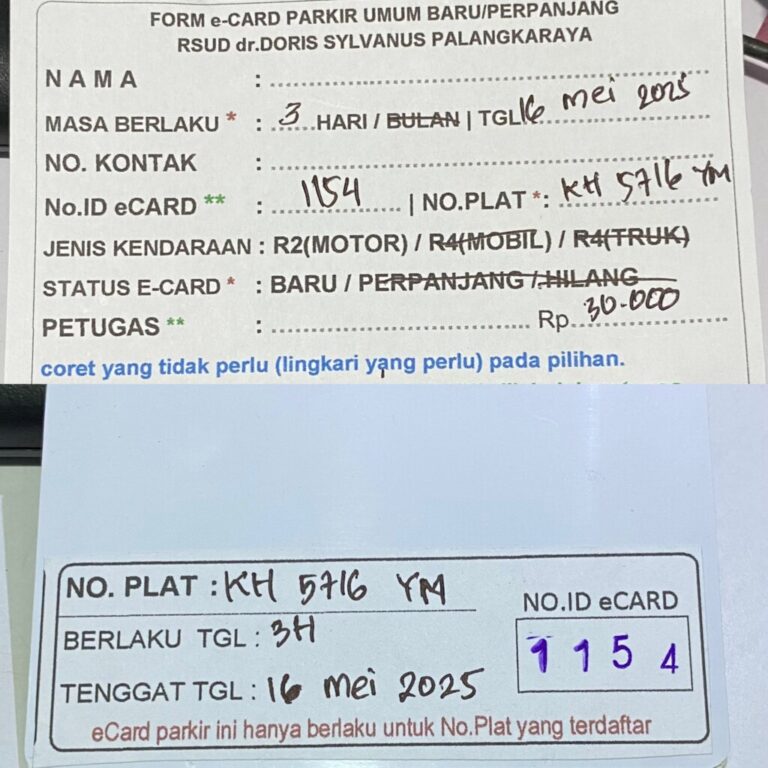 FORM e-CARD PARKIR UMUM BARU/PERPANJANG
RSUD dr.DORIS SYLVANUS PALANGKARAYA
N A M A :
MASA BERLAKU * : 3 HARI / BULAN | TGL 16 mei 2025
NO. KONTAK :
No.ID eCARD ** : 1154 | NO.PLAT *: KH 5716 YM
JENIS KENDARAAN : R2(MOTOR) / R4(MOBIL) / R4(TRUK)
STATUS E-CARD * : BARU / PERPANJANG / HILANG
PETUGAS ** : Rp 30.000
coret yang tidak perlu (lingkari yang perlu) pada pilihan.
NO. PLAT : KH 5716 YM
BERLAKU TGL : 3H
TENGGAT TGL : 16 mei 2025
NO.ID eCARD
1 1 5 4
eCard parkir ini hanya berlaku untuk No.Plat yang terdaftar